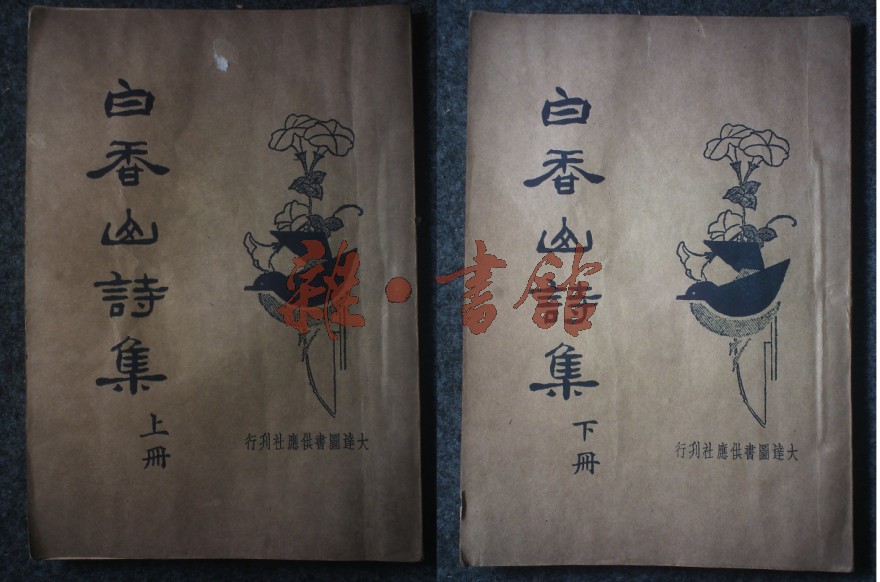 白香山詩集
上冊
大達圖書供應社刋行
白香山詩集
下冊
大達圖書供應社刋行
雜·書館